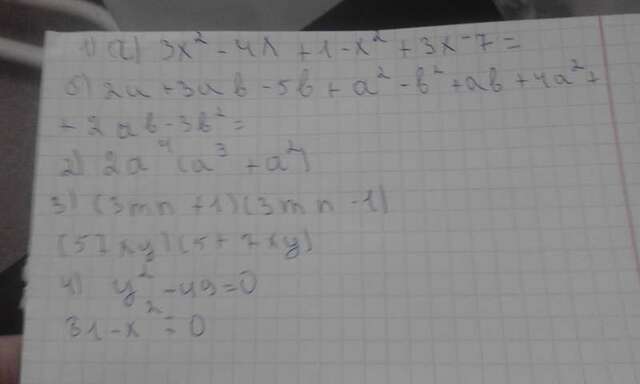 1) а) 3x² - 4x + 1 - x² + 3x - 7 =
б) 2a + 3ab - 5b + a² - b² + ab + 4a² +
+ 2ab - 3b² =
2) 2a⁴(a³ + a²)
3) (3mn + 1)(3mn - 1)
(57xy)(5 + 7xy)
4) y² - 49 = 0
31 - x² = 0